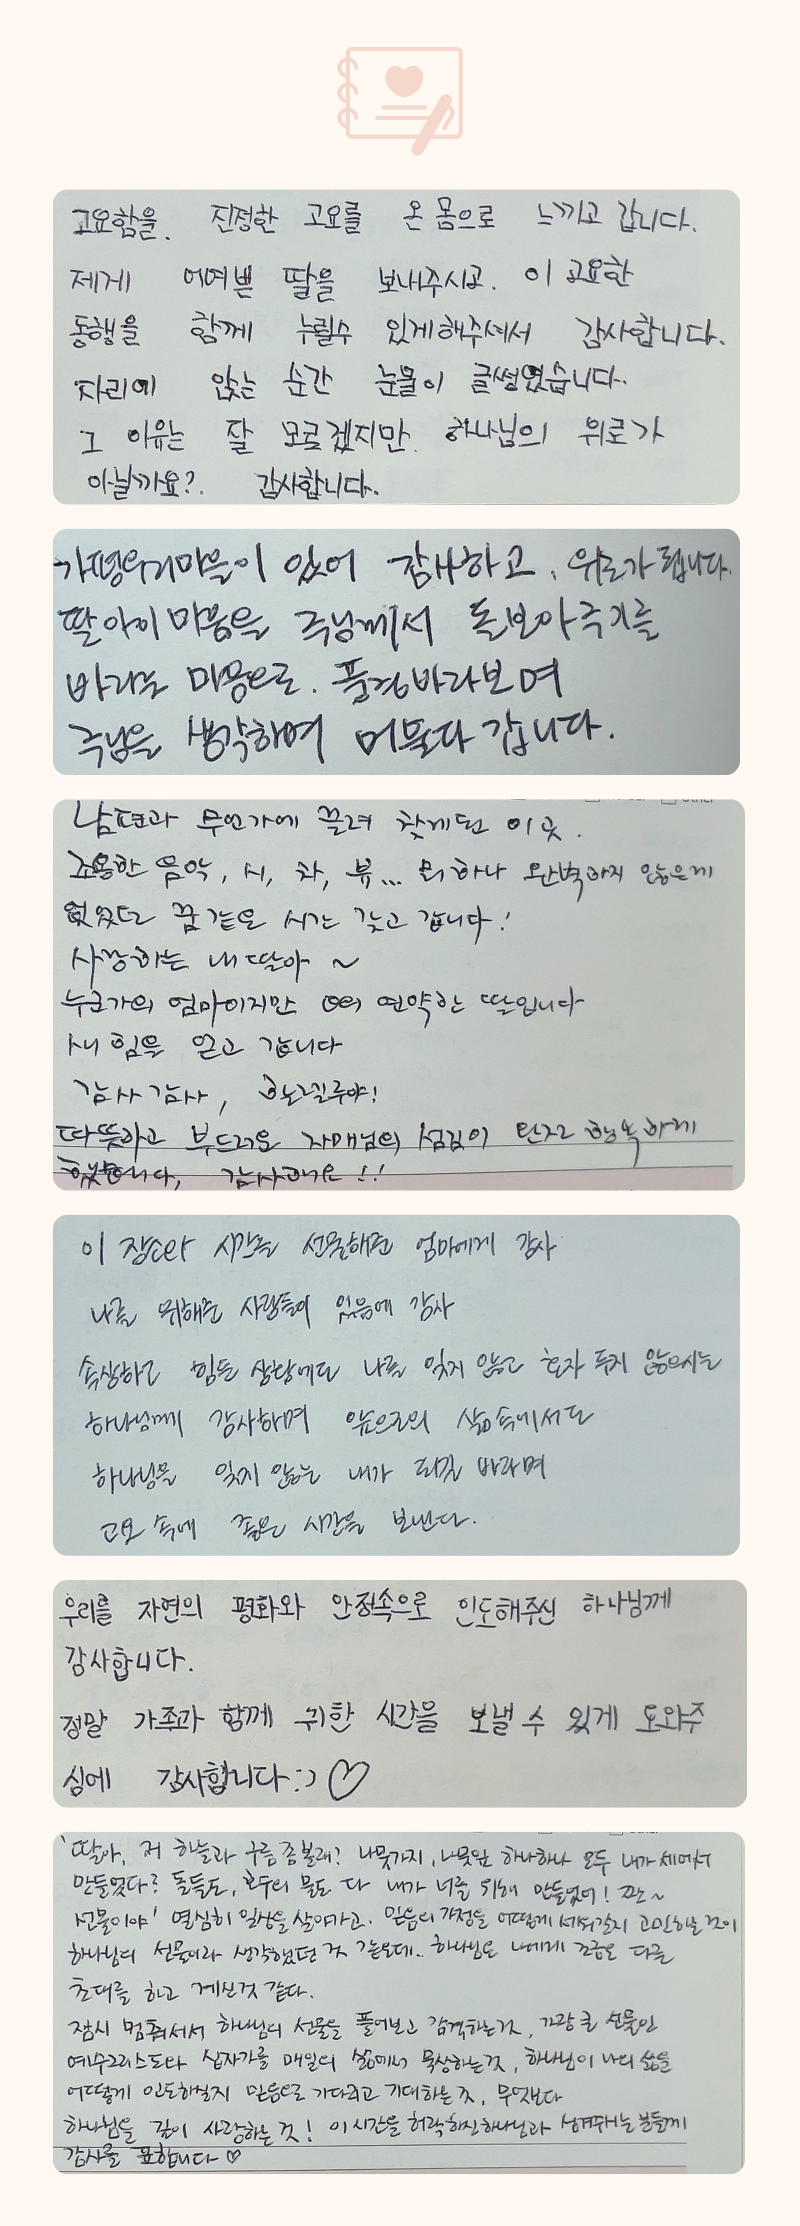 고요함을. 진정한 고요를 온 몸으로 느끼고 갑니다.
제게 예쁜 딸을 보내주시고. 이 고요한
동행을 함께 누릴수 있게해주셔서 감사합니다.
자리에 앉는 순간 눈물이 글썽였습니다.
그 이유는 잘 모르겠지만. 하나님의 위로가
아닐까요?. 감사합니다.
가평우리마을이 있어 감사하고, 위로가 됩니다.
딸아이 마음을 주님께서 돌보아주기를
바라는 마음으로. 풍경바라보며
주님을 생각하며 머물다 갑니다.
남편과 무언가에 끌려 찾게된 이곳.
조용한 음악, 시, 차, 뷰... 뭐 하나 완벽하지 않은게
없었던 꿈같은 시간 갖고 갑니다!
사랑하는 내 딸아 ~
누군가의 엄마이지만 여전히 연약한 딸입니다
새 힘을 얻고 갑니다
감사 감사, 할렐루야!
따뜻하고 부드러운 자매님의 섬김이 완전 행복하게
했습니다, 감사해요!!
이 장소와 시간을 선물해준 엄마에게 감사
나를 위해준 사람들이 있음에 감사
속상하고 힘든 상황에도 나를 잊지 않고 혼자 두지 않으시는
하나님께 감사하며 앞으로의 삶 속에서도
하나님을 잊지 않는 내가 되길 바라며
고요 속에 좋은 시간을 보낸다.
우리를 자연의 평화와 안정속으로 인도해주신 하나님께
감사합니다.
정말 가족과 함께 귀한 시간을 보낼 수 있게 도와주
심에 감사합니다 :) ♡
'딸아, 저 하늘과 구름 좀 볼래? 나뭇가지, 나뭇잎 하나하나 모두 내가 세어서
만들었다? 돌들도, 호수의 물도 다 내가 너를 위해 만들었어! 짠~
선물이야' 열심히 일상을 살아가고. 믿음의 가정을 어떻게 세워갈지 고민하는 것이
하나님의 선물이라 생각했었던 것 같은데.. 하나님은 나에게 조금은 다른
초대를 하고 계신것 같다.
잠시 멈춰서서 하나님의 선물을 풀어보고 감격하는것, 가장 큰 선물인
예수그리스도와 십자가를 매일의 삶에서 묵상하는것, 하나님이 나의 삶을
어떻게 인도하실지 믿음으로 기다리고 기대하는 것, 무엇보다
하나님을 깊이 사랑하는 것! 이 시간을 허락하신 하나님과 섬겨주시는 분들께
감사를 표합니다 ♡